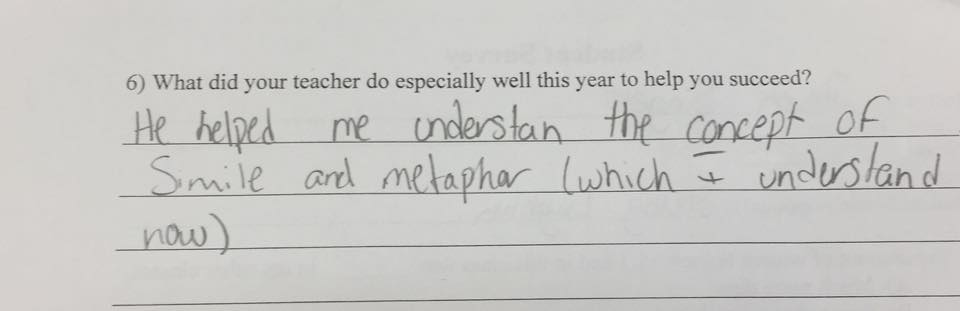 6) What did your teacher do especially well this year to help you succeed?
He helped me understan the concept of
Simile and metaphor (which I understand
now)